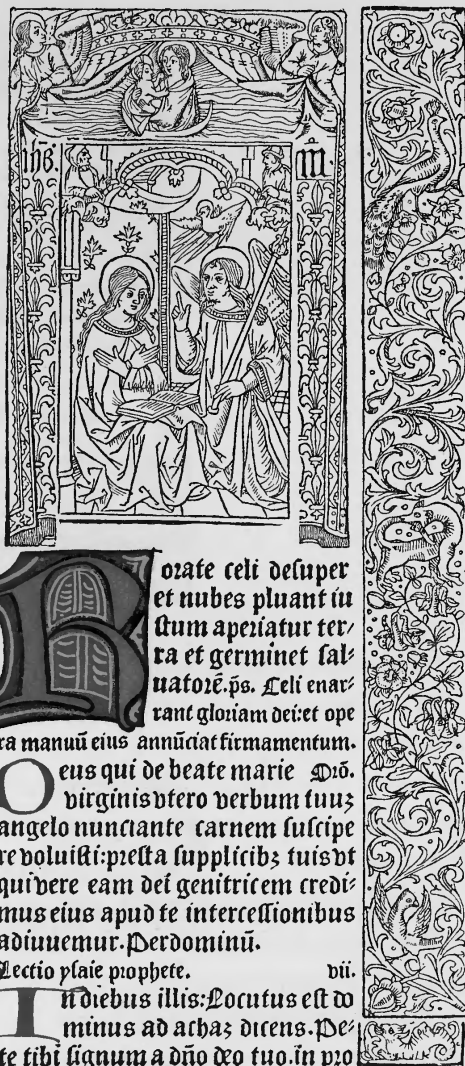 ihs. M.
Rorate celi desuper
et nubes pluant iu
stum aperiatur ter⸗
ra et germinet sal⸗
uatorē.p̄s. Celi enar⸗
rant gloriam dei:et ope
ra manuū eius annūciat firmamentum.
Deus qui de beate marie Orō.
virginis vtero verbum tuuꝫ
angelo nunciante carnem suscipe
re voluisti:presta supplicibꝫ tuis vt
qui vere eam dei genitricem credi⸗
mus eius apud te intercessionibus
adiuuemur. Per dominū.
Lectio ysaie prophete. vii.
In diebus illis: Locutus est do
minus ad achaꝫ dicens. Pe⸗
te tibi signum a dño deo tuo.in pro